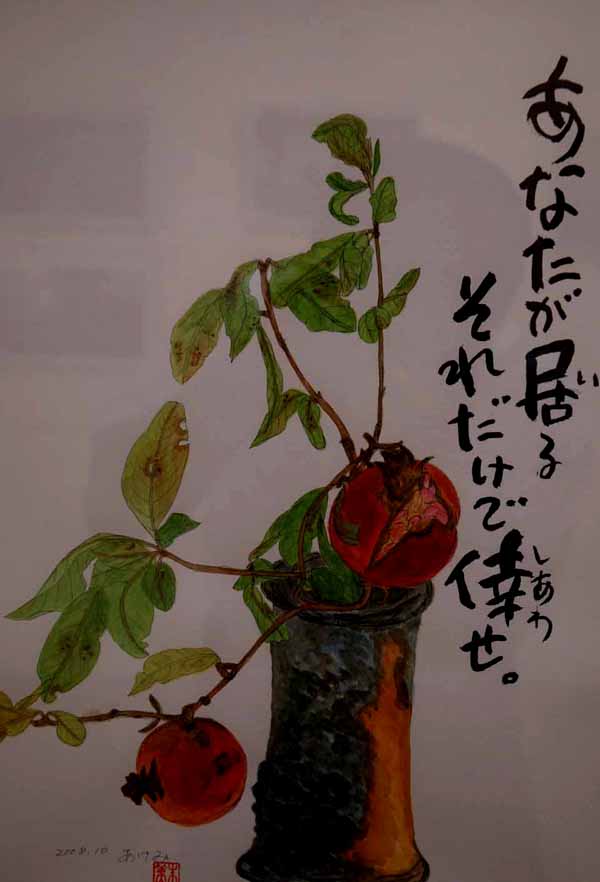 あなたが居る
い
それだけで倖せ。
しあわ
2008.10 あけみ